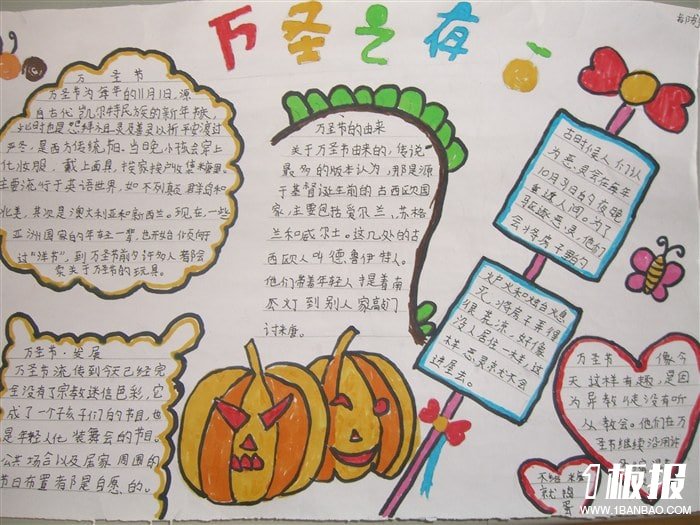 万圣之夜
万圣节
万圣节为每年的11月1日,源
自古代凯尔特民族的新年节庆,
此时也是祭拜祖灵及善灵以祈平安渡过
严冬,是西方传统节日,当日晚小孩会穿上
化妆服,戴上面具,挨家挨户收集糖果。
主要流行于英语世界,如不列颠群岛和
北美,其次是澳大利亚和新西兰。现在,一些
亚洲国家的年轻一辈,也开始倾向于
过“洋节”,到万圣节前夕许多人都会
卖关于万圣节的玩具。
万圣节的由来
关于万圣节由来的,传说
最多的版本认为,那是源
于基督诞生前的古西欧国
家,主要包括爱尔兰,苏格
兰和威尔士。这几处的古
西欧人叫德鲁伊特人。
他们带着年轻人手提着南
瓜灯到别人家高敲门
讨米唐。
古时候人们认
为恶灵会在每年
10月31日的夜晚
重造人间。为了
驱逐恶灵,他们
会将房子里的
炉火和烛台火息
灭,将房子弄得
很荒凉,好像
没人居住一样,这
样恶灵就不会
进屋去。
万圣节·发展
万圣节流传到今天已经完
全没有了宗教迷信色彩,它
成了一个孩子们的节目,也
是年轻人化装舞会的节目。
公共场合以及居家周围的
节日布置都是自愿的。
万圣节像今
天这样有趣,是因
为异教徒没有听
从教会。他们在万
圣节继续沿用
不给糖
就捣
蛋
1板报
WWW.1BANBAO.COM